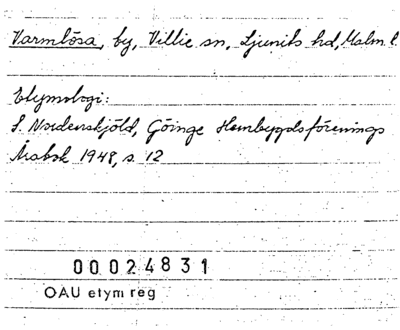 Varmlösa, by, Villie sn, Ljunits hd, Malm l.
Etymologi:
S. Nordenskjöld, Göinge Hembygdsförenings
Årsbok 1948, s. 12
00024831
OAU etym reg